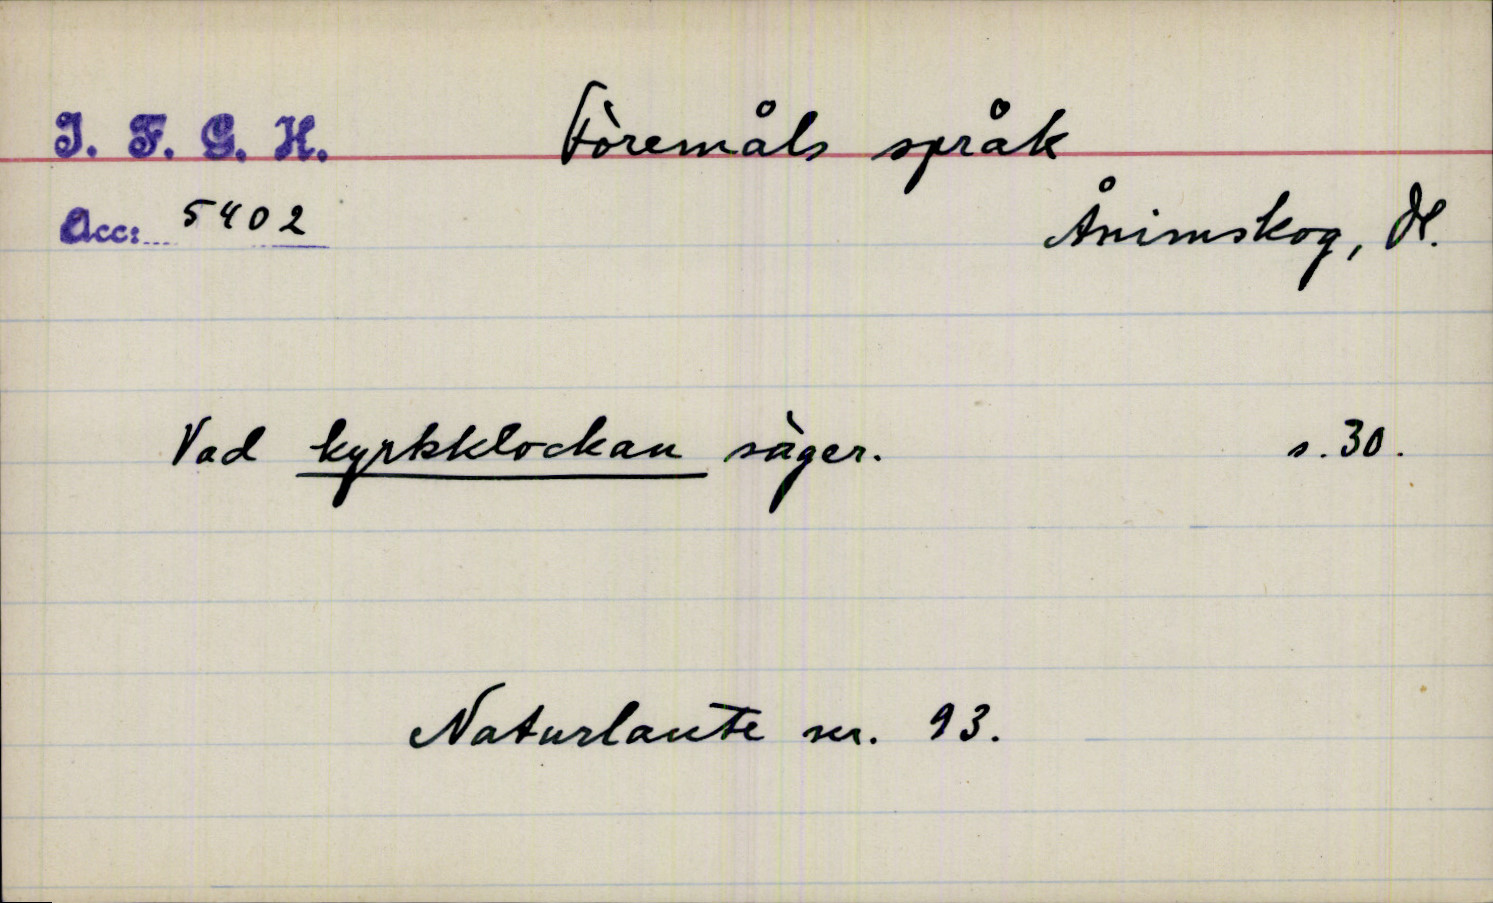 I. F. G. H. Föremåls språk
Acc: 5402 Ånimskog, Dl.
Vad kyrkklockan säger. s. 30.
Naturlaute nr. 93.